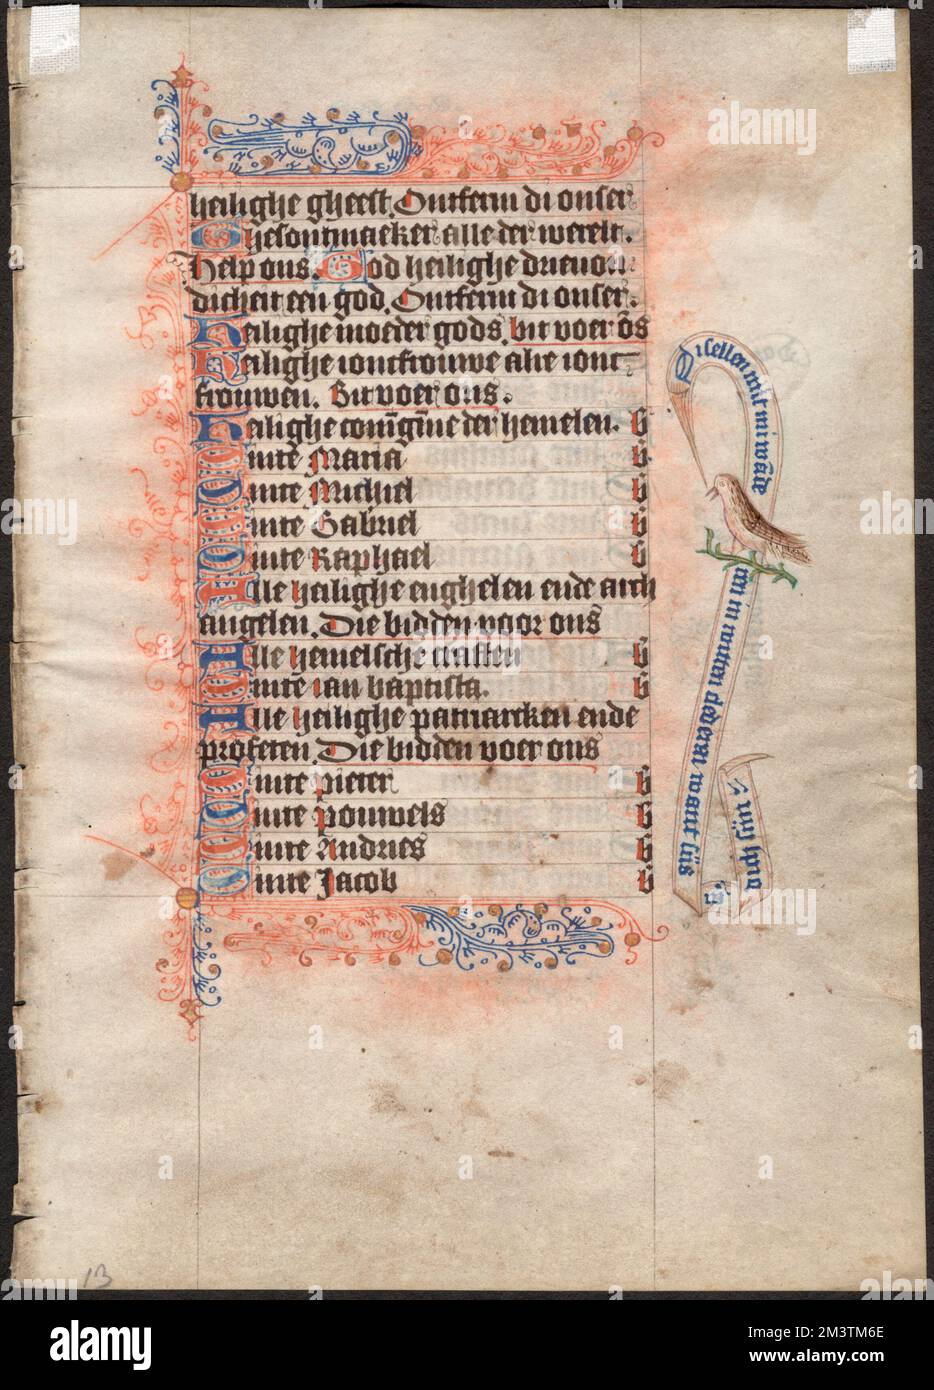 heilighe gheest. Ontferm di onser
Ghesontmaeker alle der werelt.
Help ons. God heilighe drievou
dicheit een god. Ontferm di onser.
Heilighe moeder gods. bit voer ōs
Heilighe ioncfrouwe alre ionc
frouwen. Bit voer ons.
Heilighe coningīne der hemelen. b
Sinte Maria b
Sinte Michiel b
Sinte Gabriel b
Sinte Raphael b
Alle heilighe enghelen ende arch
angelen. Die bidden voor ons
Alle hemelsche crachten b
Sinte ian baptista. b
Alle heilighe patriarcken ende
profeten. Die bidden voer ons
Sinte pieter b
Sinte pouwels b
Sinte Andries b
Sinte Jacob b
13
alamy
Image ID: 2M3TM6E
www.alamy.com